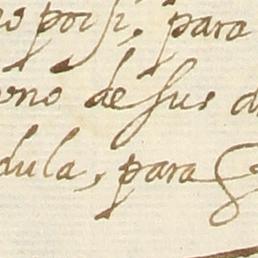 por si, para
de sus
dula, para